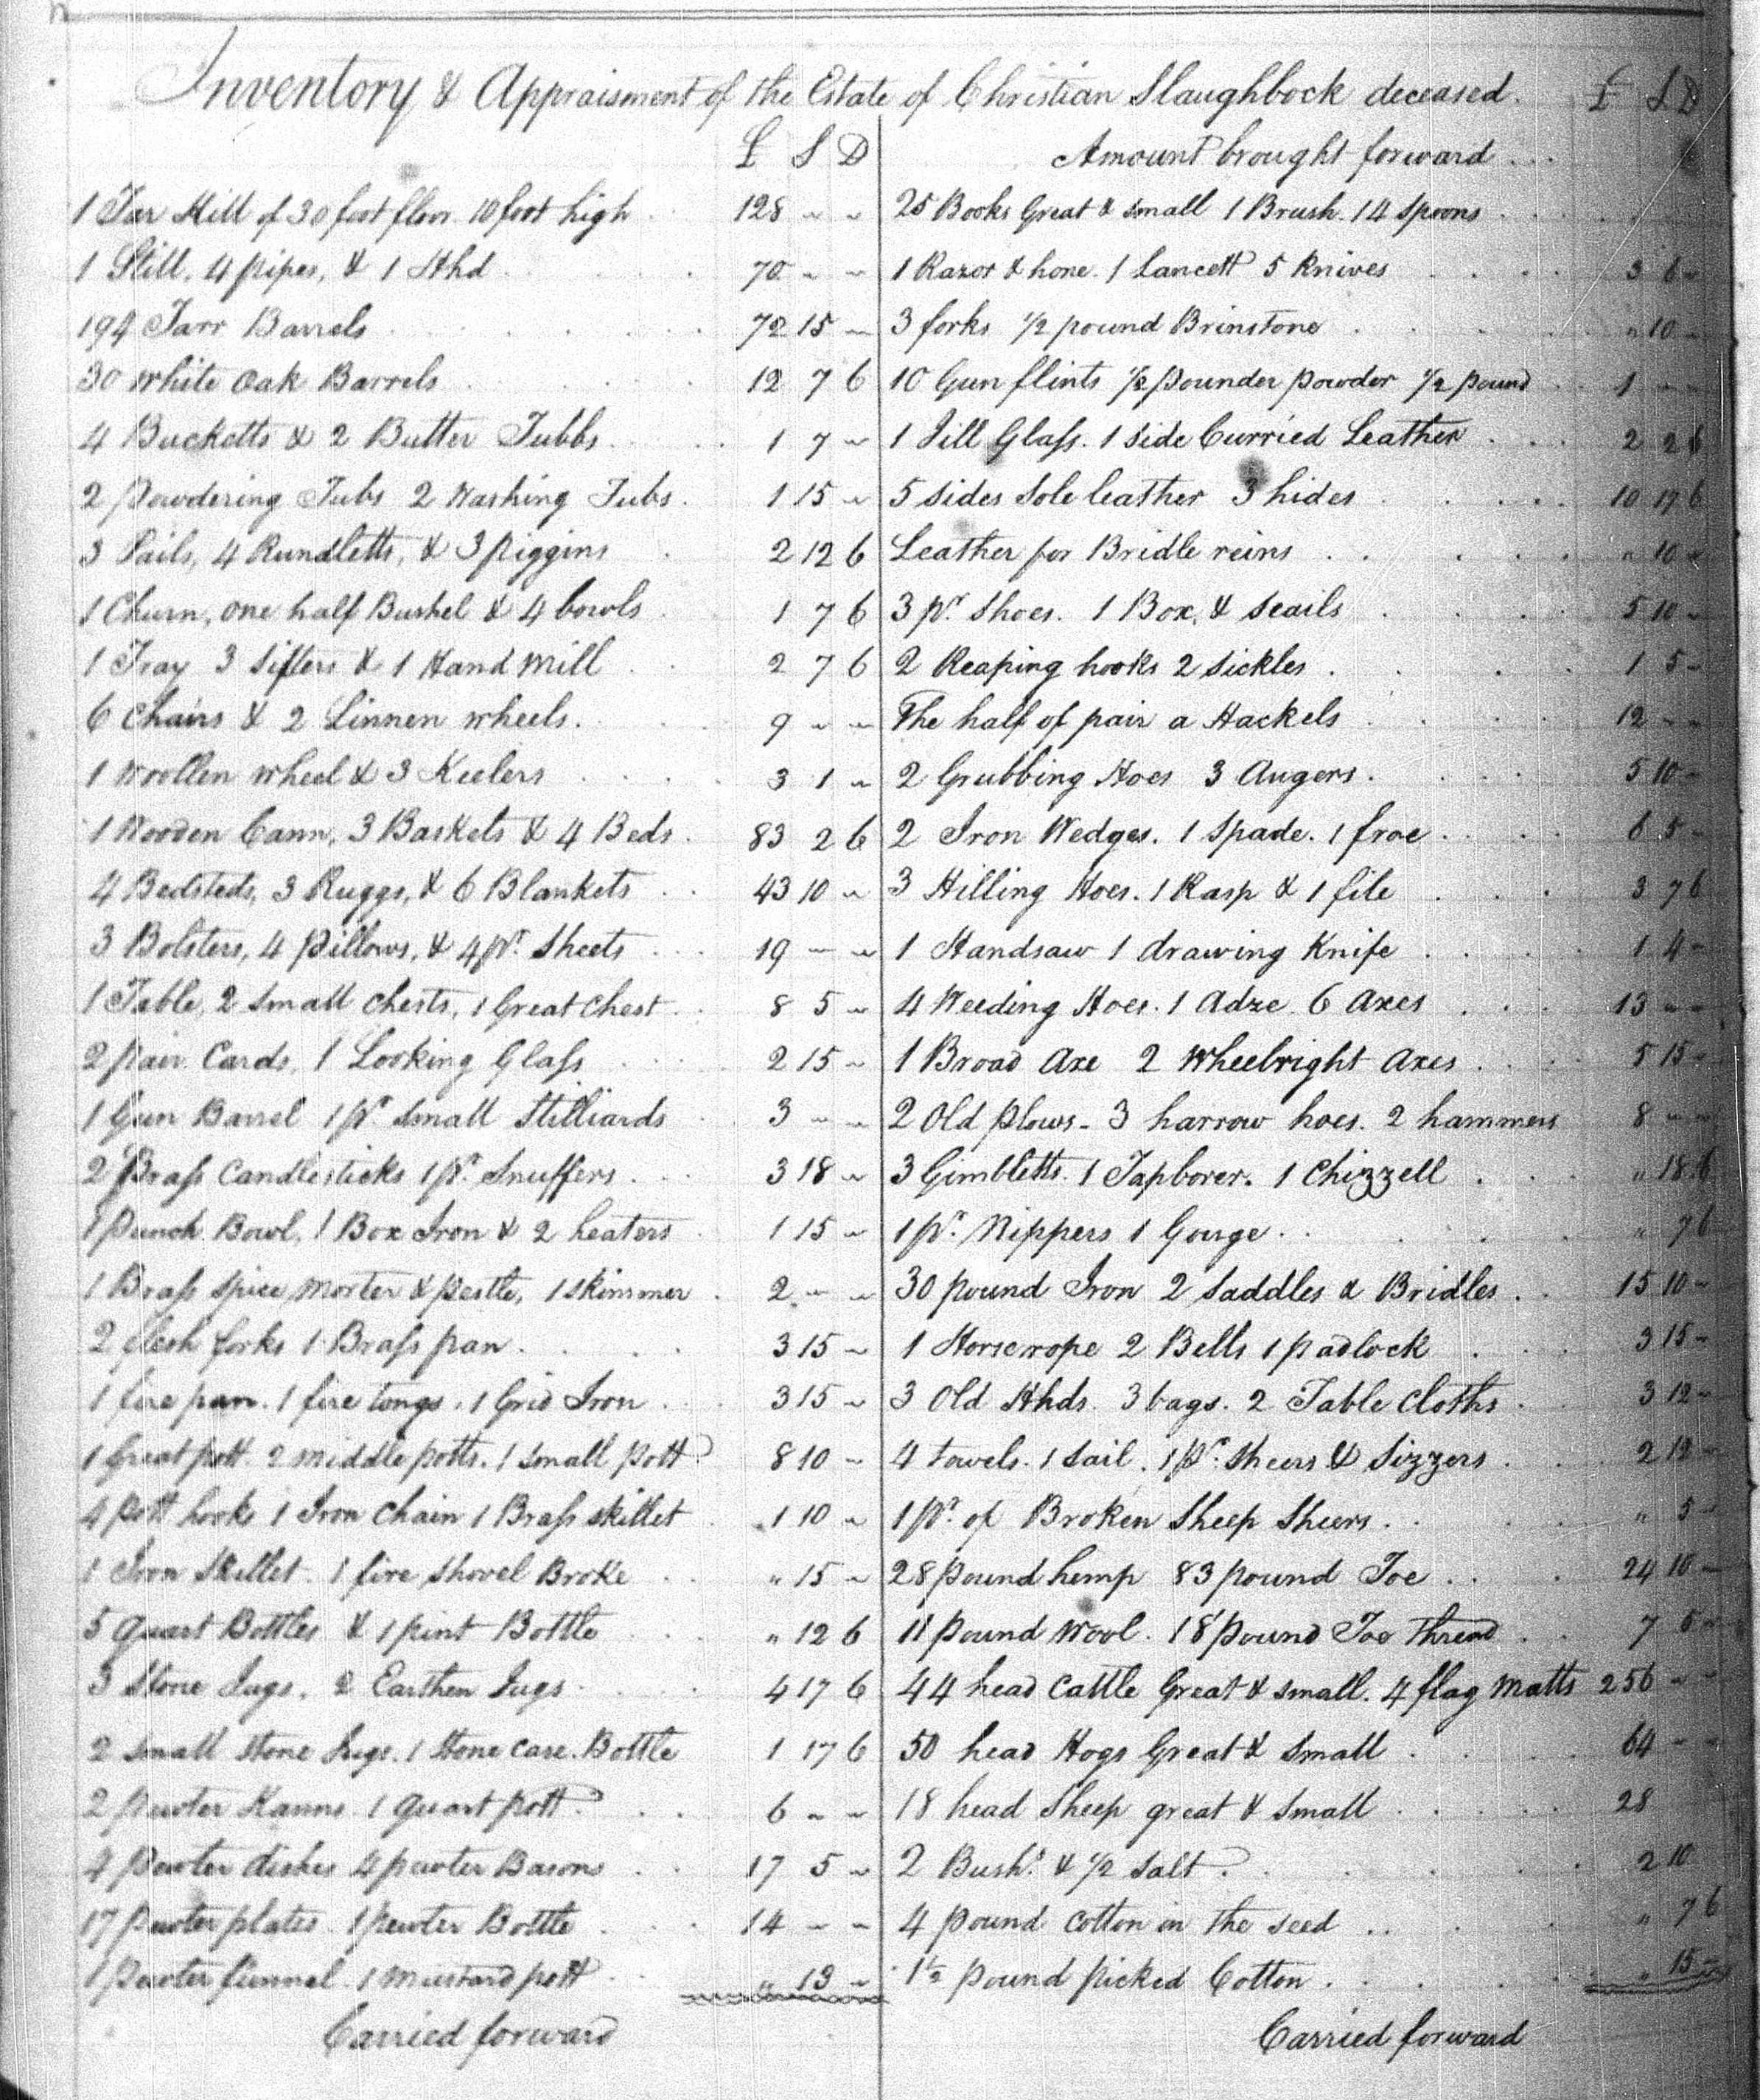 Inventory & Appraisment of the Estate of Christian Slaughbock deceased. £ S D
£ S D
1 Tar Mill of 30 foot floor 10 foot high 128 " "
1 Still, 4 pipes, & 1 Hhd 70 " "
194 Tarr Barrels 72 15 "
30 White Oak Barrels 12 7 6
4 Bucketts & 2 Butter Tubbs 1 7 "
2 Powdering Tubs 2 Washing Tubs. 1 15 "
3 Pails, 4 Rundletts, & 3 Piggins 2 12 6
1 Churn, one half Bushel & 4 bowls 1 7 6
1 Tray 3 Sifters & 1 Hand Mill 2 7 6
6 Chairs & 2 Linnen wheels. 9 " "
1 Woollen wheel & 3 Keelers 3 1 "
1 Wooden Cann, 3 Baskets & 4 Beds. 83 2 6
4 Bedsteds, 3 Ruggs, & 6 Blankets 43 10 "
3 Bolsters, 4 Pillows, & 4 pr. Sheets 19 " "
1 Table, 2 Small Chests, 1 Great Chest 8 5 "
2 pair Cards, 1 Looking Glass 2 15 "
1 Gun Barrel 1 pr. Small Stilliards 3 " "
2 Brass Candlesticks 1 pr. Snuffers 3 18 "
1 Punch Bowl, 1 Box Iron & 2 heaters 1 15 "
1 Brass Spice Morter & Pestle, 1 Skimmer 2 " "
2 flesh forks 1 Brass pan 3 15 "
1 fire pan. 1 fire tongs. 1 Grid Iron 3 15 "
1 Great pott. 2 middle potts. 1 Small Pott 8 10 "
4 Pott hooks 1 Iron Chain 1 Brass Skillet 1 10 "
1 Iron Skillet. 1 fire Shovel Broke " 15 "
5 Quart Bottles & 1 pint Bottle " 12 6
3 Stone Jugs, 2 Earthen Jugs 4 17 6
2 Small Stone Jugs. 1 Stone Case. Bottle 1 17 6
2 Pewter Kanns. 1 Quart Pott. 6 " "
4 Pewter dishes 4 pewter Basons 17 5 "
17 Pewter plates. 1 Pewter Bottle 14 " "
1 Pewter funnel. 1 Mustard pott " 13 "
Carried forward
Amount brought forward
25 Books Great & small 1 Brush. 14 Spoons
1 Razor & hone. 1 Lancett 5 Knives 3 6 "
3 forks 1/2 pound Brinstone " 10 "
10 Gun flints 1/2 pounder Powder 1/2 pound 1 " "
1 Jill Glass. 1 Side Curried Leather 2 2 6
5 Sides Sole leather 3 hides 10 17 6
Leather for Bridle reins " 10 "
3 pr. Shoes. 1 Box, & Scails 5 10 "
2 Reaping hooks 2 Sickles 1 5 "
The half of pair a Hackels 12 " "
2 Grubbing Hoes 3 Augers. 5 10 "
2 Iron Wedges. 1 Spade. 1 froe 6 5 "
3 Hilling Hoes. 1 Rasp & 1 file 3 7 6
1 Handsaw 1 drawing Knife 1 4 "
4 Weeding Hoes. 1 Adze. 6 Axes 13 " "
1 Broad Axe 2 Wheelright Axes 5 15 "
2 Old Plows - 3 harrow hoes. 2 hammers 8 " "
3 Gimbletts. 1 Tapborer. 1 Chizzell " 18 6
1 pr. Nippers 1 Gouge " 7 6
30 pound Iron 2 Saddles & Bridles 15 10 "
1 Horserope 2 Bells 1 padlock 3 15 "
3 Old Hhds. 3 bags. 2 Table Cloths 3 12 "
4 towels. 1 Sail. 1 pr. Sheers & Sizzers 2 12 "
1 pr. of Broken Sheep Sheers " 5 "
28 pound hemp 83 pound Toe 24 10 "
11 pound Wool. 18 pound Toe thread 7 5 "
44 head Cattle Great & Small. 4 flag Matts 256 " "
50 head Hogs Great & Small 64 " "
18 head Sheep great & Small 28
2 Bush.s & 1/2 Salt 2 10
4 pound Cotton in the seed " 7 6
1 1/2 pound picked Cotton " 15 "
Carried forward